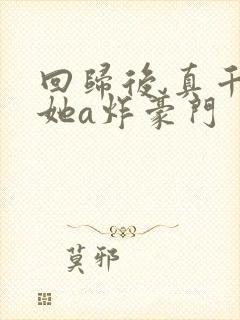 回歸後,真千
她a炸豪門
莫邪